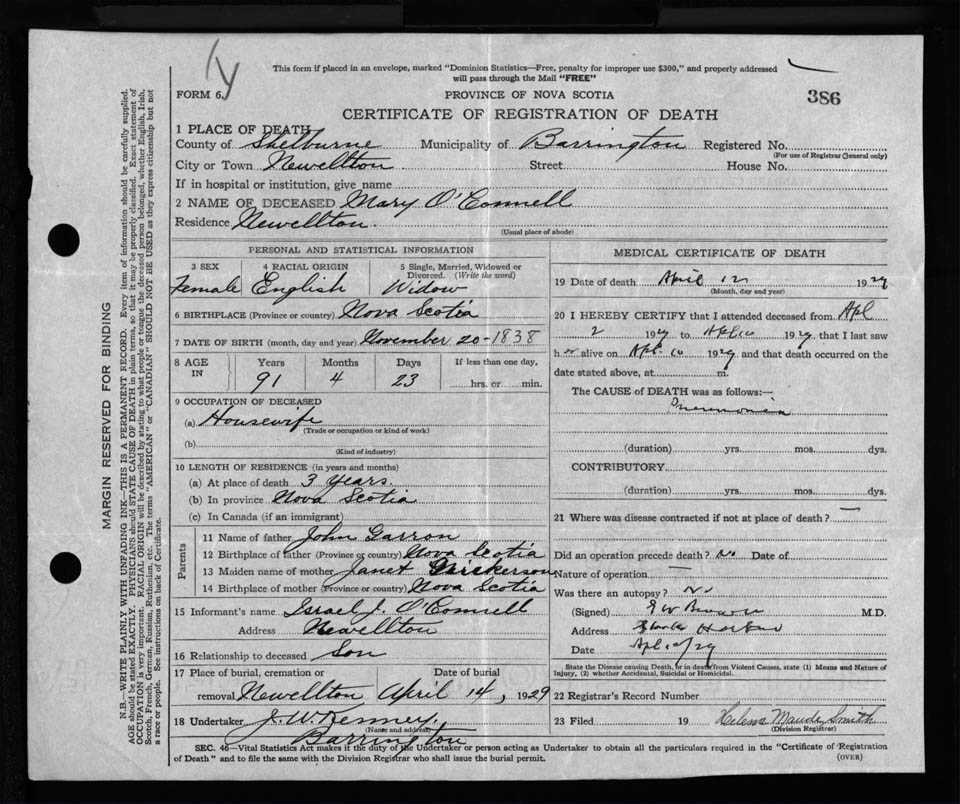 This form if placed in an envelope, marked "Dominion Statistics—Free, penalty for improper use $300," and properly addressed
will pass through the Mail "FREE"
FORM 6.
PROVINCE OF NOVA SCOTIA
386
CERTIFICATE OF REGISTRATION OF DEATH
1 PLACE OF DEATH
County of Shelburne Municipality of Barrington Registered No.
(For use of Registrar General only)
City or Town Newellton Street House No.
If in hospital or institution, give name
2 NAME OF DECEASED Mary O'Connell
Residence Newellton.
(Usual place of abode)
PERSONAL AND STATISTICAL INFORMATION
3 SEX 4 RACIAL ORIGIN 5 Single, Married, Widowed or
Divorced. (Write the word)
Female English Widow
6 BIRTHPLACE (Province or country) Nova Scotia
7 DATE OF BIRTH (month, day and year) November 20 - 1838
8 AGE IN Years Months Days If less than one day,
91 4 23 hrs. or min.
9 OCCUPATION OF DECEASED
(a) Housewife
(Trade or occupation or kind of work)
(b)
(Kind of industry)
10 LENGTH OF RESIDENCE (in years and months)
(a) At place of death 3 years.
(b) In province Nova Scotia
(c) In Canada (if an immigrant)
Parents
11 Name of father John Garron
12 Birthplace of father (Province or country) Nova Scotia
13 Maiden name of mother Janet Nickerson
14 Birthplace of mother (Province or country) Nova Scotia
15 Informant's name Israel J. O'Connell
Address Newellton
16 Relationship to deceased Son
17 Place of burial, cremation or Date of burial
removal Newellton April 14, 1929
18 Undertaker J. W. Kenney,
(Name and address)
Barrington
MEDICAL CERTIFICATE OF DEATH
19 Date of death April 12 1929
(Month, day and year)
20 I HEREBY CERTIFY that I attended deceased from Apl
2 1929 to Apl 10 1929 that I last saw
her alive on Apl. 10 1929 and that death occurred on the
date stated above, at m.
The CAUSE of DEATH was as follows:—
Pneumonia
(duration) yrs. mos. dys.
CONTRIBUTORY
(duration) yrs. mos. dys.
21 Where was disease contracted if not at place of death? —
Did an operation precede death? No Date of
Nature of operation —
Was there an autopsy? No
(Signed) M.D.
Address Harbor
Date
State the Disease causing Death, or in death from Violent Causes, state (1) Means and Nature of
Injury, (2) whether Accidental, Suicidal or Homicidal.
22 Registrar's Record Number
23 Filed 19 Helena Maude Smith
(Division Registrar)
SEC. 46—Vital Statistics Act makes it the duty of the Undertaker or person acting as Undertaker to obtain all the particulars required in the "Certificate of Registration
of Death" and to file the same with the Division Registrar who shall issue the burial permit.
(OVER)
MARGIN RESERVED FOR BINDING
N.B.—WRITE PLAINLY WITH UNFADING INK—THIS IS A PERMANENT RECORD. Every item of information should be carefully supplied.
AGE should be stated EXACTLY. PHYSICIANS should STATE CAUSE OF DEATH in plain terms, so that it may be properly classified. Exact statement of
OCCUPATION is very important. RACIAL ORIGIN will be described by stating to what people or tongue the deceased person belonged, whether English, Irish,
Scotch, French, German, Russian, Ruthenian, etc. The terms "AMERICAN" or "CANADIAN" SHOULD NOT BE USED as they express citizenship but not
a race or people. See instructions on back of Certificate.